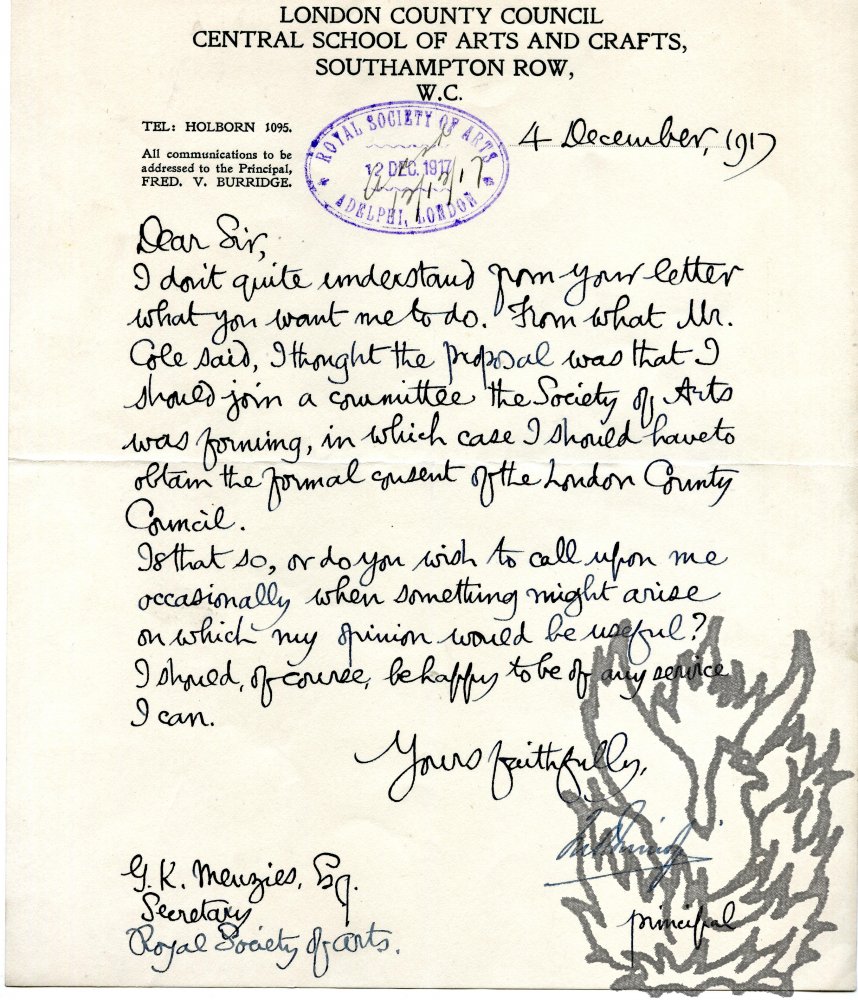 LONDON COUNTY COUNCIL
CENTRAL SCHOOL OF ARTS AND CRAFTS,
SOUTHAMPTON ROW,
W.C.
TEL: HOLBORN 1095.
All communications to be
addressed to the Principal,
FRED. V. BURRIDGE.
ROYAL SOCIETY OF ARTS
12 DEC. 1917
12/12/17
ADELPHI, LONDON
4 December, 1917
Dear Sir,
I don't quite understand from your letter
what you want me to do. From what Mr.
Cole said, I thought the proposal was that I
should join a committee the Society of Arts
was forming, in which case I should have to
obtain the formal consent of the London County
Council.
Is that so, or do you wish to call upon me
occasionally when something might arise
on which my opinion would be useful?
I should, of course, be happy to be of any service
I can.
Yours faithfully,
principal
G. K. Menzies, Esq.
Secretary
Royal Society of Arts.